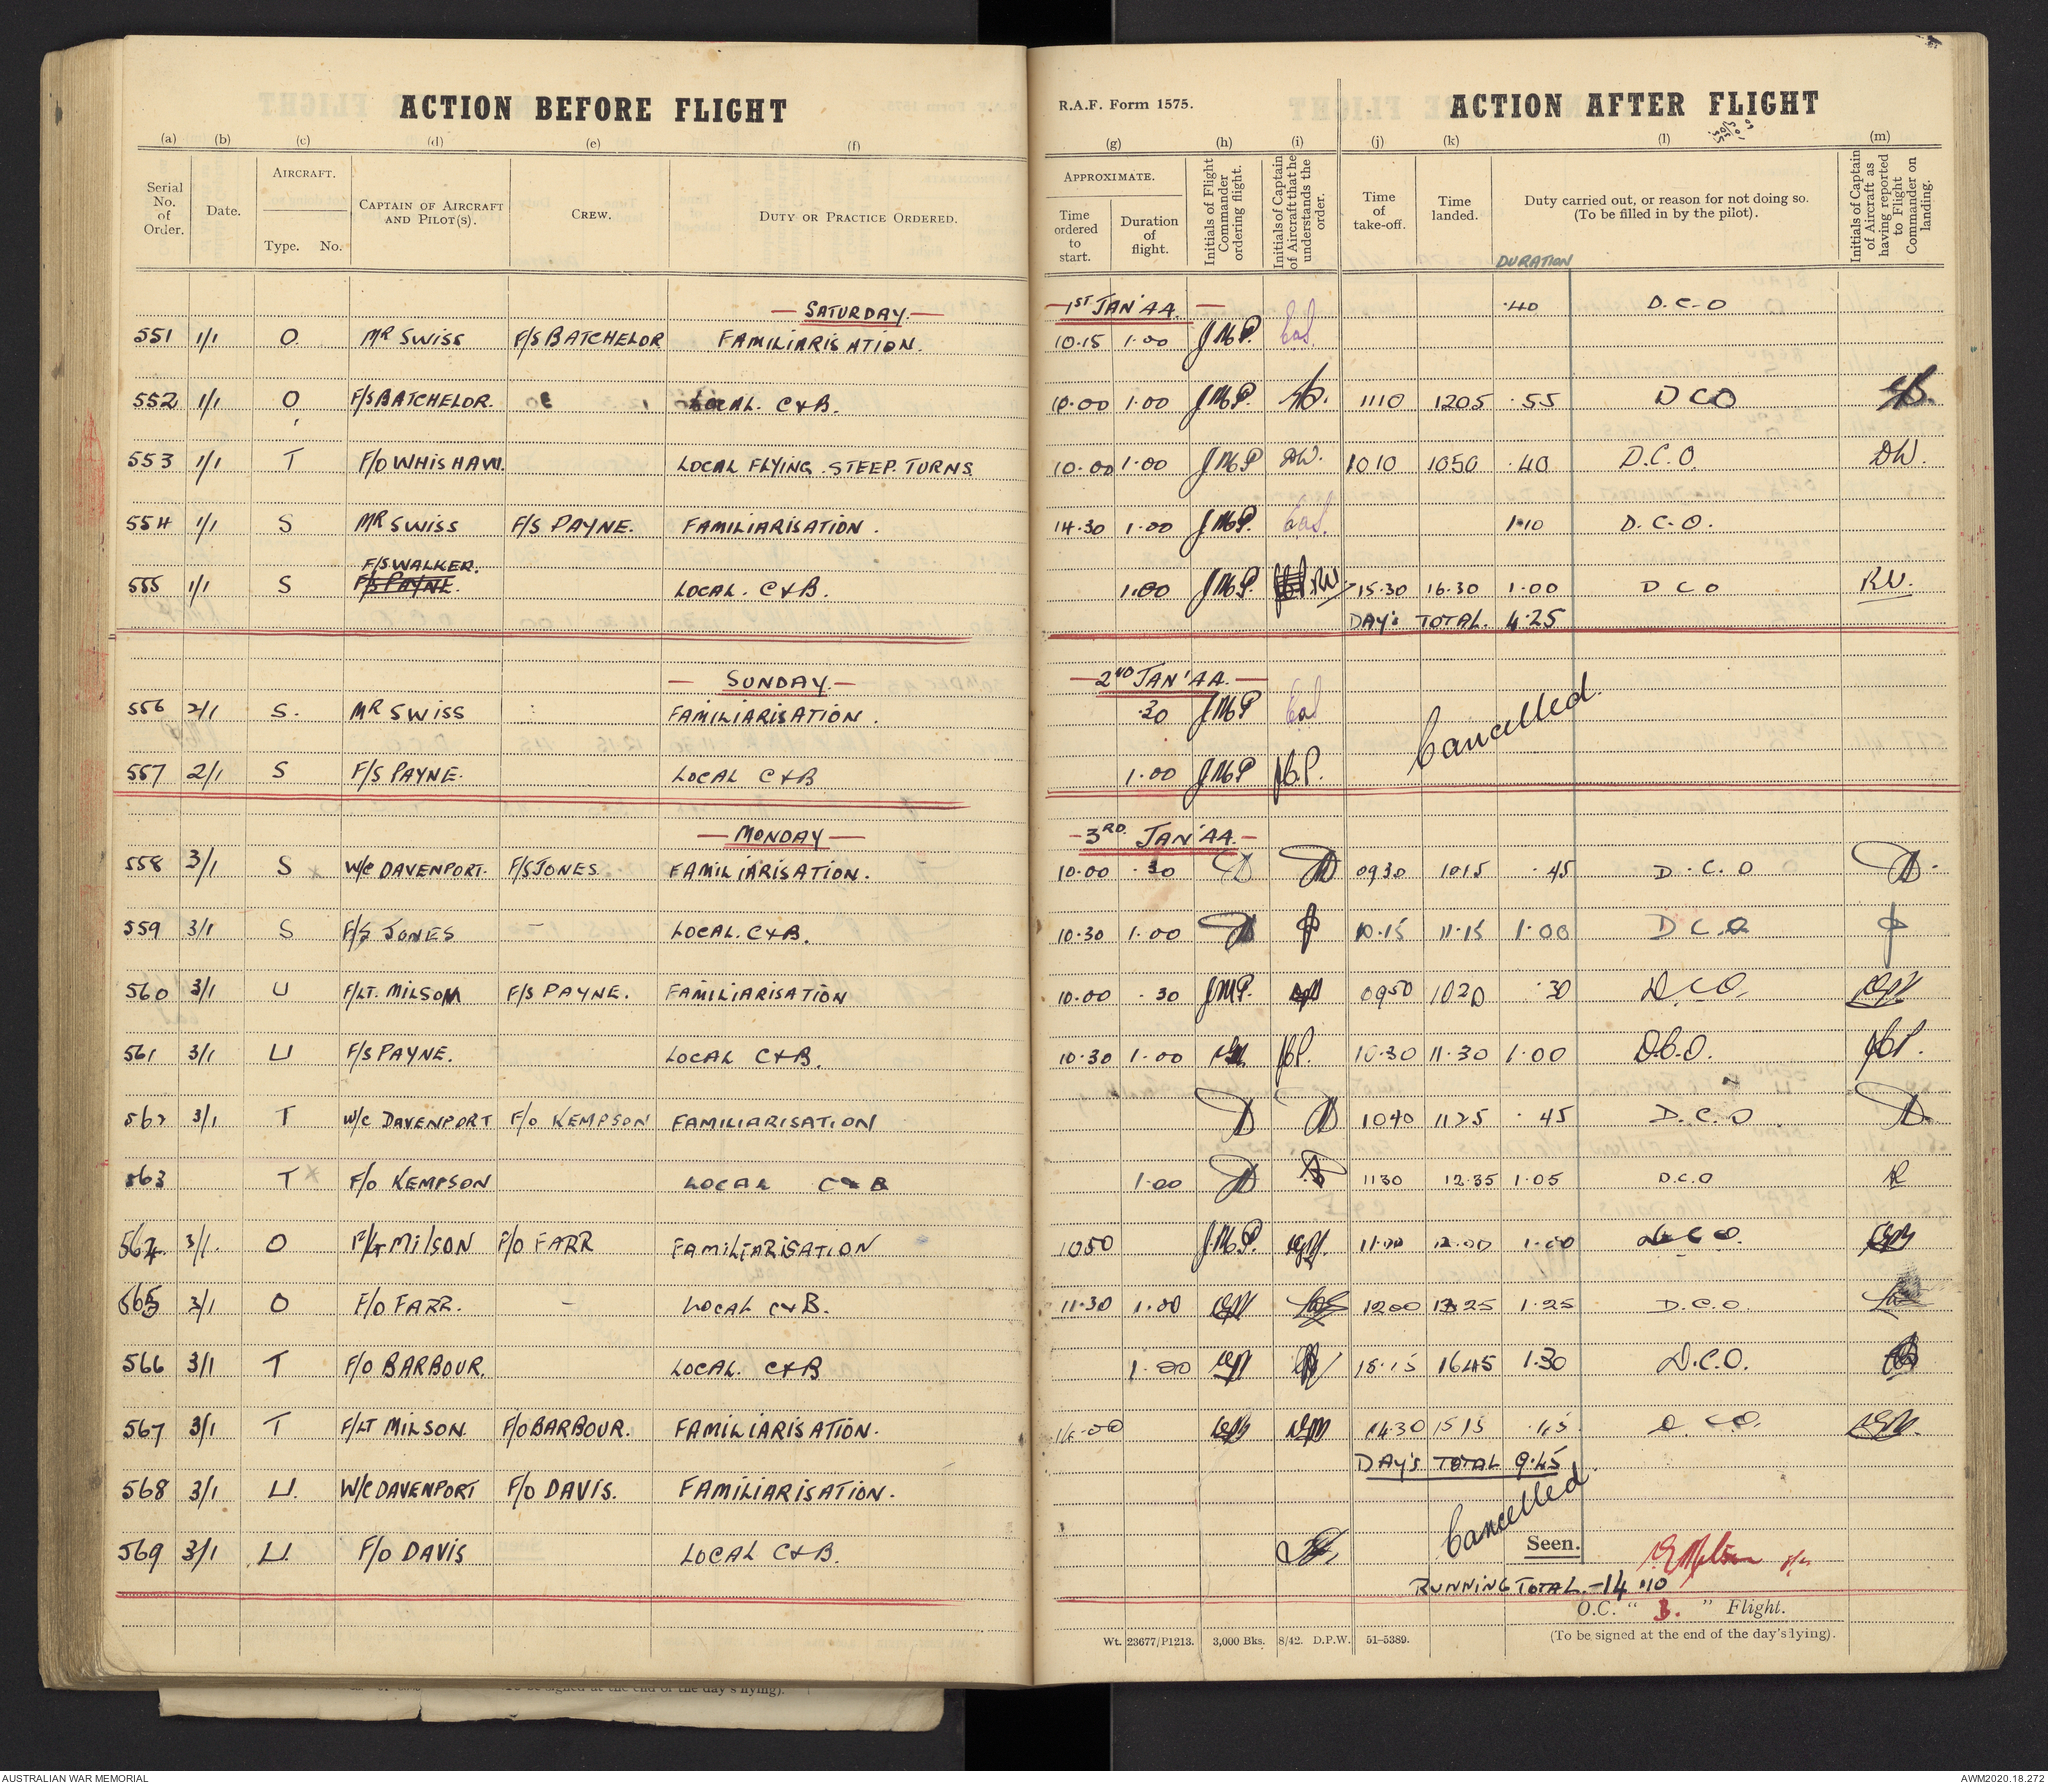 ACTION BEFORE FLIGHT
R.A.F. Form 1575.
ACTION AFTER FLIGHT
(a) (b) (c) (d) (e) (f) (g) (h) (i) (j) (k) (l) (m)
Serial No. of Order.
Date.
AIRCRAFT.
Type. No.
CAPTAIN OF AIRCRAFT AND PILOT(S).
CREW.
DUTY OR PRACTICE ORDERED.
APPROXIMATE.
Time ordered to start.
Duration of flight.
Initials of Flight Commander ordering flight.
Initials of Captain of Aircraft that he understands the order.
Time of take-off.
Time landed.
Duty carried out, or reason for not doing so.
(To be filled in by the pilot).
Initials of Captain of Aircraft as having reported to Flight Commander on landing.
DURATION
— SATURDAY — — 1ST JAN '44. —
551 1/1 O. MR SWISS F/S BATCHELOR FAMILIARISATION. 10.15 1.00 JMP. EaS .40 D.C.O
552 1/1 O F/S BATCHELOR. LOCAL. C&B. 10.00 1.00 JMP. 1110 1205 .55 DCO
553 1/1 T F/O WHISHAW. LOCAL FLYING. STEEP. TURNS 10.00 1.00 JMP DW. 1010 1050 .40 D.C.O. DW.
554 1/1 S MR SWISS F/S PAYNE. FAMILIARISATION. 14.30 1.00 JMP. EaS. 1.10 D.C.O.
F/S WALKER.
555 1/1 S F/S PAYNE. LOCAL. C&B. 1.00 JMP. RW 15.30 16.30 1.00 D C O RW.
DAY'S TOTAL. 4.25
— SUNDAY. — — 2ND JAN '44. —
556 2/1 S. MR SWISS FAMILIARISATION. .30 JMP EaS
Cancelled.
557 2/1 S F/S PAYNE. LOCAL C&B 1.00 JMP JBP.
— MONDAY — — 3RD. JAN '44. —
558 3/1 S x W/C DAVENPORT. F/S JONES FAMILIARISATION. 10.00 .30 D D 0930 1015 .45 D.C.O D.
559 3/1 S F/S JONES — LOCAL. C&B. 10.30 1.00 D 10.15 11.15 1.00 D C O
560 3/1 U F/LT. MILSOM F/S PAYNE. FAMILIARISATION 10.00 .30 JMP. 0950 1020 .30 D.C.O.
561 3/1 U F/S PAYNE. LOCAL C&B. 10.30 1.00 JBP. 10.30 11.30 1.00 D.C.O. JBP.
562 3/1 T W/C DAVENPORT F/O KEMPSON FAMILIARISATION D D 1040 1125 .45 D.C.O D
563 T x F/O KEMPSON LOCAL C&B 1.00 D 1130 12.35 1.05 D.C.O
564. 3/1. O F/LT MILSON P/O FARR FAMILIARISATION 1050 JMP. 11.00 12.00 1.00 D.C.O.
565 3/1 O F/O FARR. — LOCAL C&B. 11.30 1.00 1200 1325 1.25 D.C.O
566 3/1 T F/O BARBOUR. LOCAL. C&B 1.00 15.15 1645 1.30 D.C.O.
567 3/1 T F/LT MILSON F/O BARBOUR. FAMILIARISATION. 14.00 14.30 1515 .45 D.C.O.
DAY'S TOTAL 9.45
568 3/1 U. W/C DAVENPORT F/O DAVIS. FAMILIARISATION.
Cancelled
569 3/1 U. F/O DAVIS LOCAL C&B.
Seen.
RUNNING TOTAL. -14.10
O.C. " B. " Flight.
(To be signed at the end of the day's flying).
Wt. 23677/P1213. 3,000 Bks. 8/42. D.P.W. 51-5389.
AUSTRALIAN WAR MEMORIAL
AWM2020.18.272